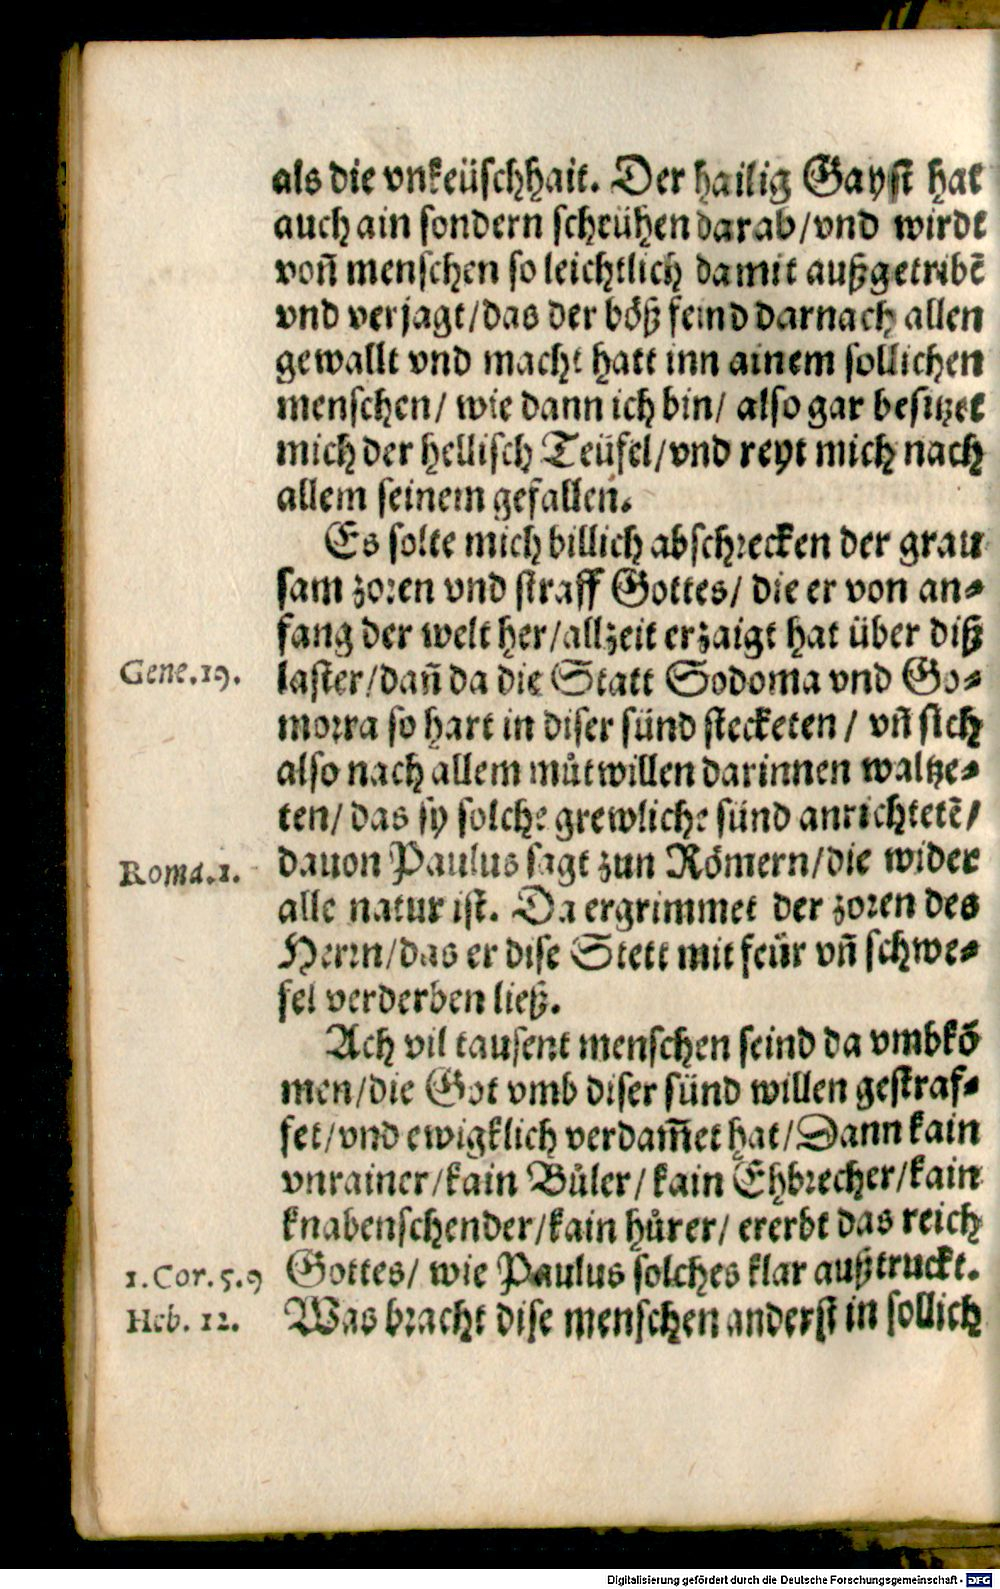 als die vnkeüschhait. Der hailig Gayst hat
auch ain sondern schrühen darab/vnd wirdt
voñ menschen so leichtlich damit außgetribẽ
vnd verjagt/das der böß feind darnach allen
gewallt vnd macht hatt inn ainem sollichen
menschen/ wie dann ich bin/ also gar besitzet
mich der hellisch Teüfel/vnd reyt mich nach
allem seinem gefallen.
Es solte mich billich abschrecken der grau
sam zoren vnd straff Gottes/ die er von an⸗
fang der welt her/allzeit erzaigt hat über diß
Gene.19. laster/dañ da die Statt Sodoma vnd Go⸗
morra so hart in diser sünd stecketen / vñ sich
also nach allem můtwillen darinnen waltze⸗
ten/ das sy solche grewliche sünd anrichtetẽ/
Roma.1. dauon Paulus sagt zun Römern/die wider
alle natur ist. Da ergrimmet der zoren des
Herrn/das er dise Stett mit feür vñ schwe⸗
fel verderben ließ.
Ach vil tausent menschen seind da vmbkõ
men/die Got vmb diser sünd willen gestraf⸗
fet/vnd ewigklich verdam̃et hat/Dann kain
vnrainer/kain Bůler/ kain Ehbrecher/kain
knabenschender/kain hůrer/ ererbt das reich
1. Cor. 5.9 Gottes/ wie Paulus solches klar außtruckt.
Heb. 12. Was bracht dise menschen anderst in sollich
Digitalisierung gefördert durch die Deutsche Forschungsgemeinschaft - DFG